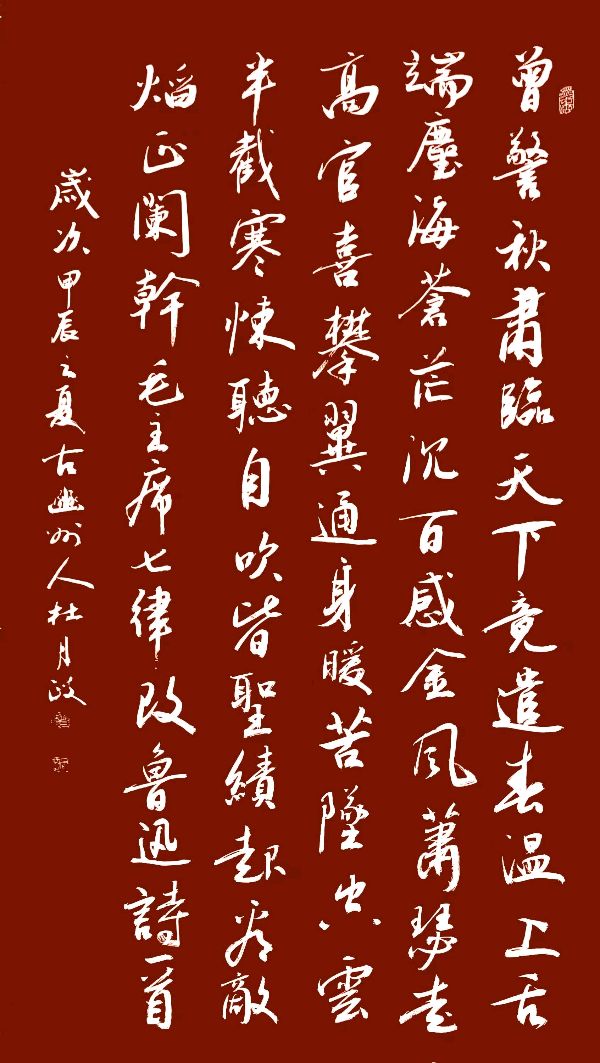 曾警秋肅臨天下竟遣春温上舌
端塵海蒼茫沉百感金風蕭瑟走
高官喜攀翼通身暖苦墜空雲
半截寒悚聽自吹皆聖績起看敵
焰正闌幹毛主席七律改魯迅詩一首
歲次甲辰之夏古幽州人杜月政